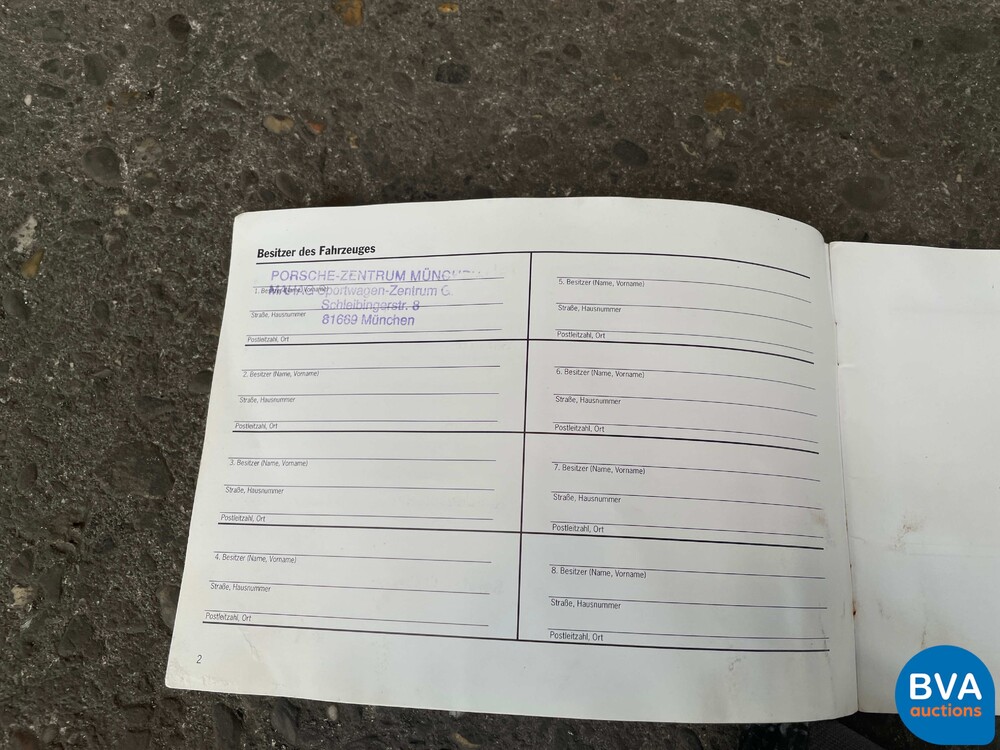 Besitzer des Fahrzeuges
PORSCHE-ZENTRUM
1. Besitzer (Name, Vorname)
Sportwagen-Zentrum
Straße, Hausnummer
Schleibingerstr. 8
81669 München
Postleitzahl, Ort
2. Besitzer (Name, Vorname)
Straße, Hausnummer
Postleitzahl, Ort
3. Besitzer (Name, Vorname)
Straße, Hausnummer
Postleitzahl, Ort
4. Besitzer (Name, Vorname)
Straße, Hausnummer
Postleitzahl, Ort
5. Besitzer (Name, Vorname)
Straße, Hausnummer
Postleitzahl, Ort
6. Besitzer (Name, Vorname)
Straße, Hausnummer
Postleitzahl, Ort
7. Besitzer (Name, Vorname)
Straße, Hausnummer
Postleitzahl, Ort
8. Besitzer (Name, Vorname)
Straße, Hausnummer
Postleitzahl, Ort
2
BVA
auctions